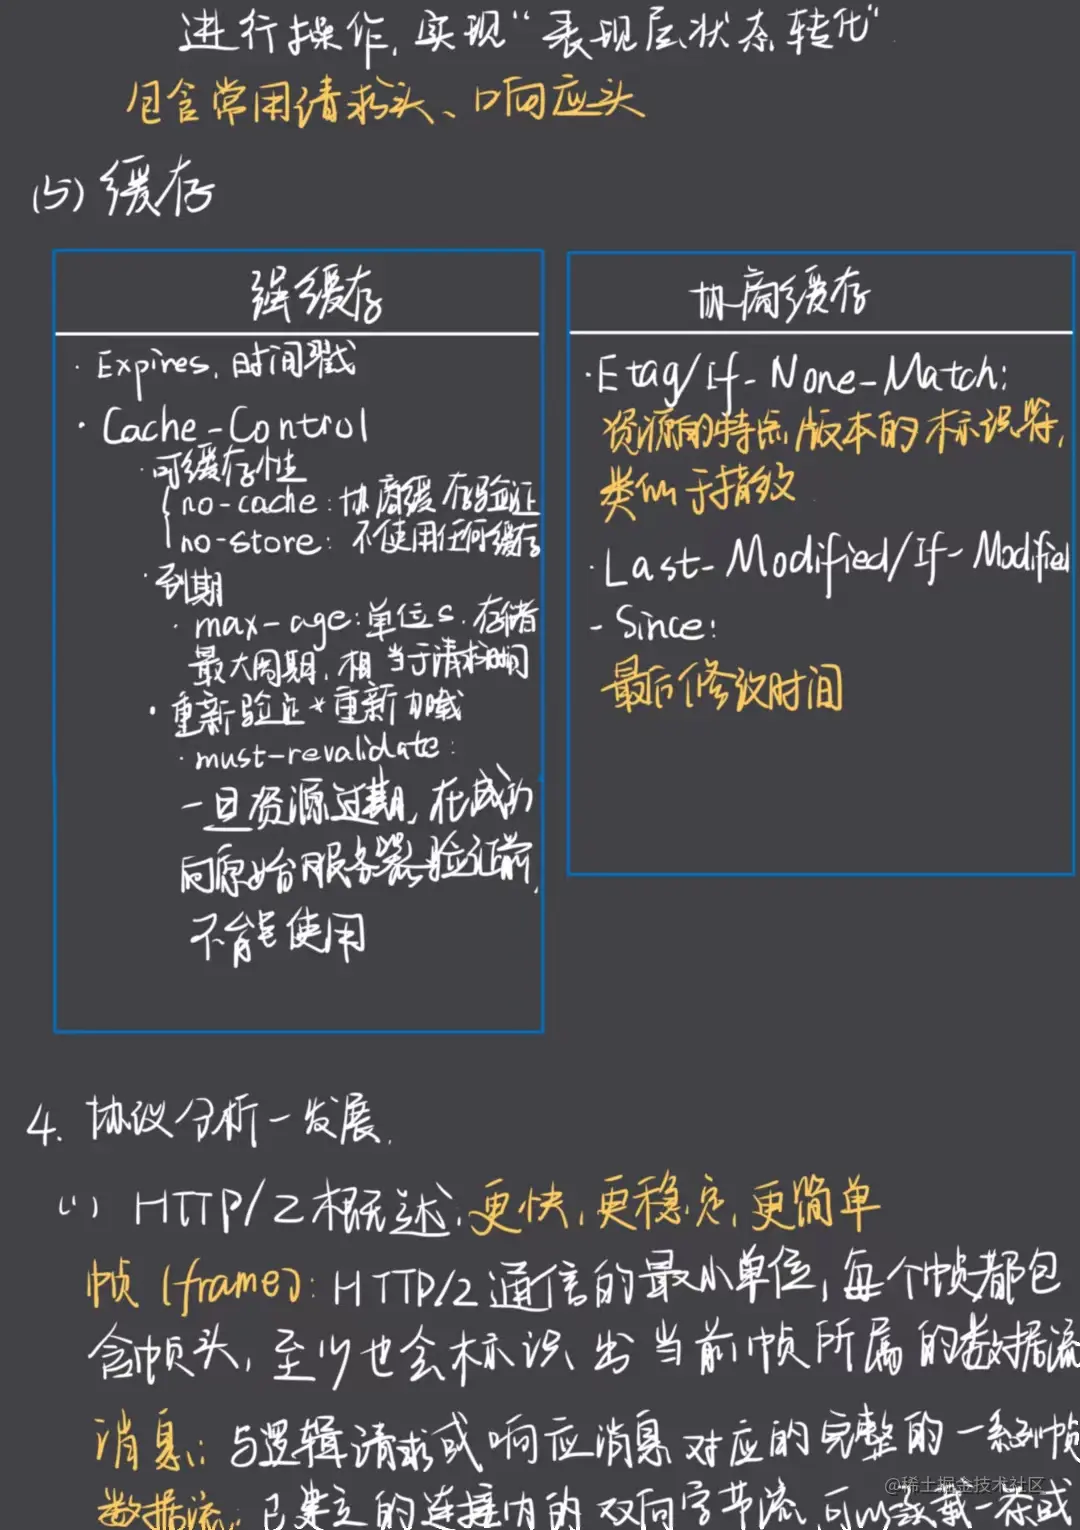 进行操作,实现“表现层状态转化”
包含常用请求头、响应头
(5) 缓存
强缓存
· Expires, 时间戳
· Cache-Control
· 可缓存性
no-cache: 协商缓存验证
no-store: 不使用任何缓存
· 到期
· max-age: 单位s. 存储
最大周期, 相当于请求时间
· 重新验证*重新加载
· must-revalidate:
一旦资源过期, 在成功
向原始服务器验证前,
不能使用
协商缓存
· Etag/If-None-Match:
资源的特点版本的标识符,
类似于指纹
· Last-Modified/If-Modified
-Since:
最后修改时间
4. 协议分析-发展.
(1) HTTP/2概述: 更快, 更稳定, 更简单
帧 (frame): HTTP/2通信的最小单位, 每个帧都包
含帧头, 至少也会标识出当前帧所属的数据流
消息: 与逻辑请求或响应消息对应的完整的一系列帧
数据流: 已建立的连接内的双向字节流, 可以承载一条或
@稀土掘金技术社区